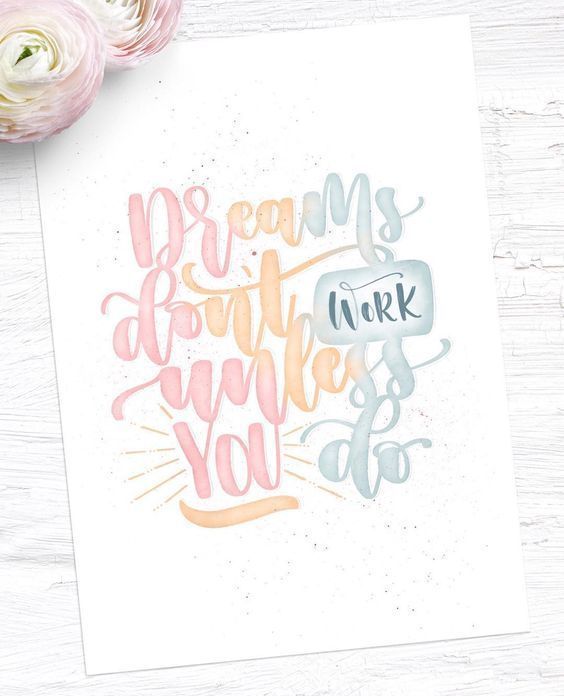 Dreams
don't WORK
unless
YOU do